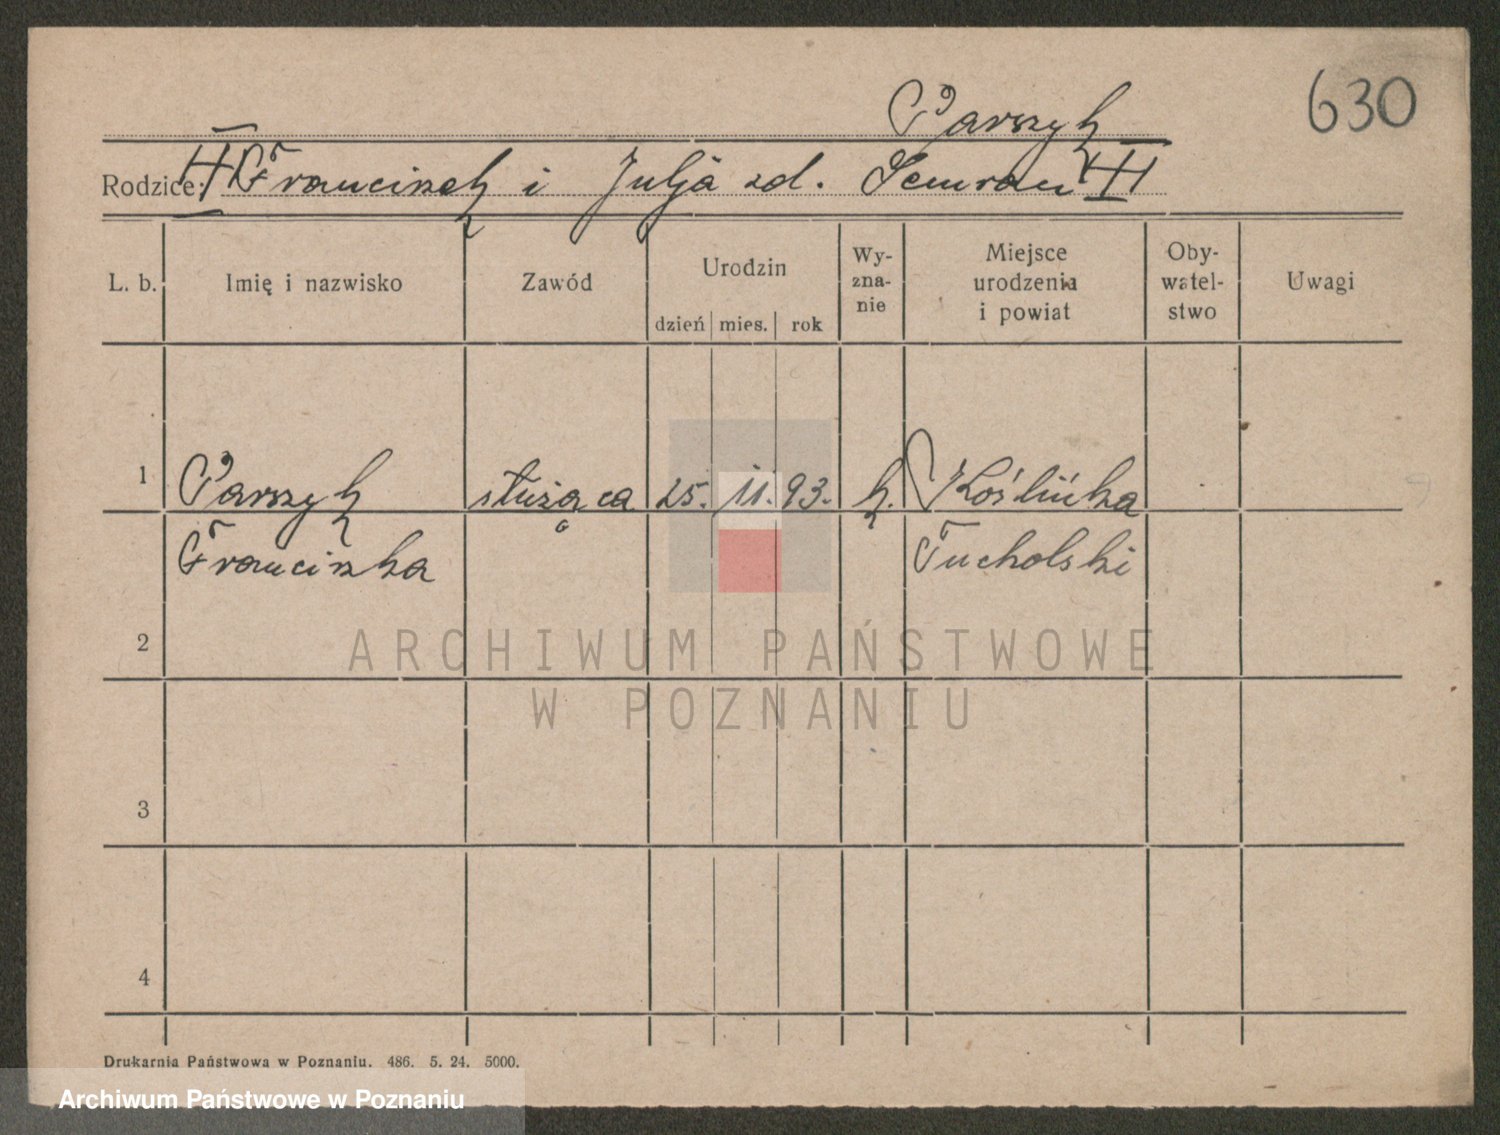 630
Parszyk
Rodzice: Franciszek i Julja zd. Semrau
L. b.
Imię i nazwisko
Zawód
Urodzin
dzień mies. rok
Wy-
zna-
nie
Miejsce
urodzenia
i powiat
Oby-
watel-
stwo
Uwagi
1 Parszyk służąca 25. 11. 93. k. Koślinka
Franciszka Tucholski
2
3
4
ARCHIWUM PAŃSTWOWE
W POZNANIU
Drukarnia Państwowa w Poznaniu. 486. 5. 24. 5000.
Archiwum Państwowe w Poznaniu